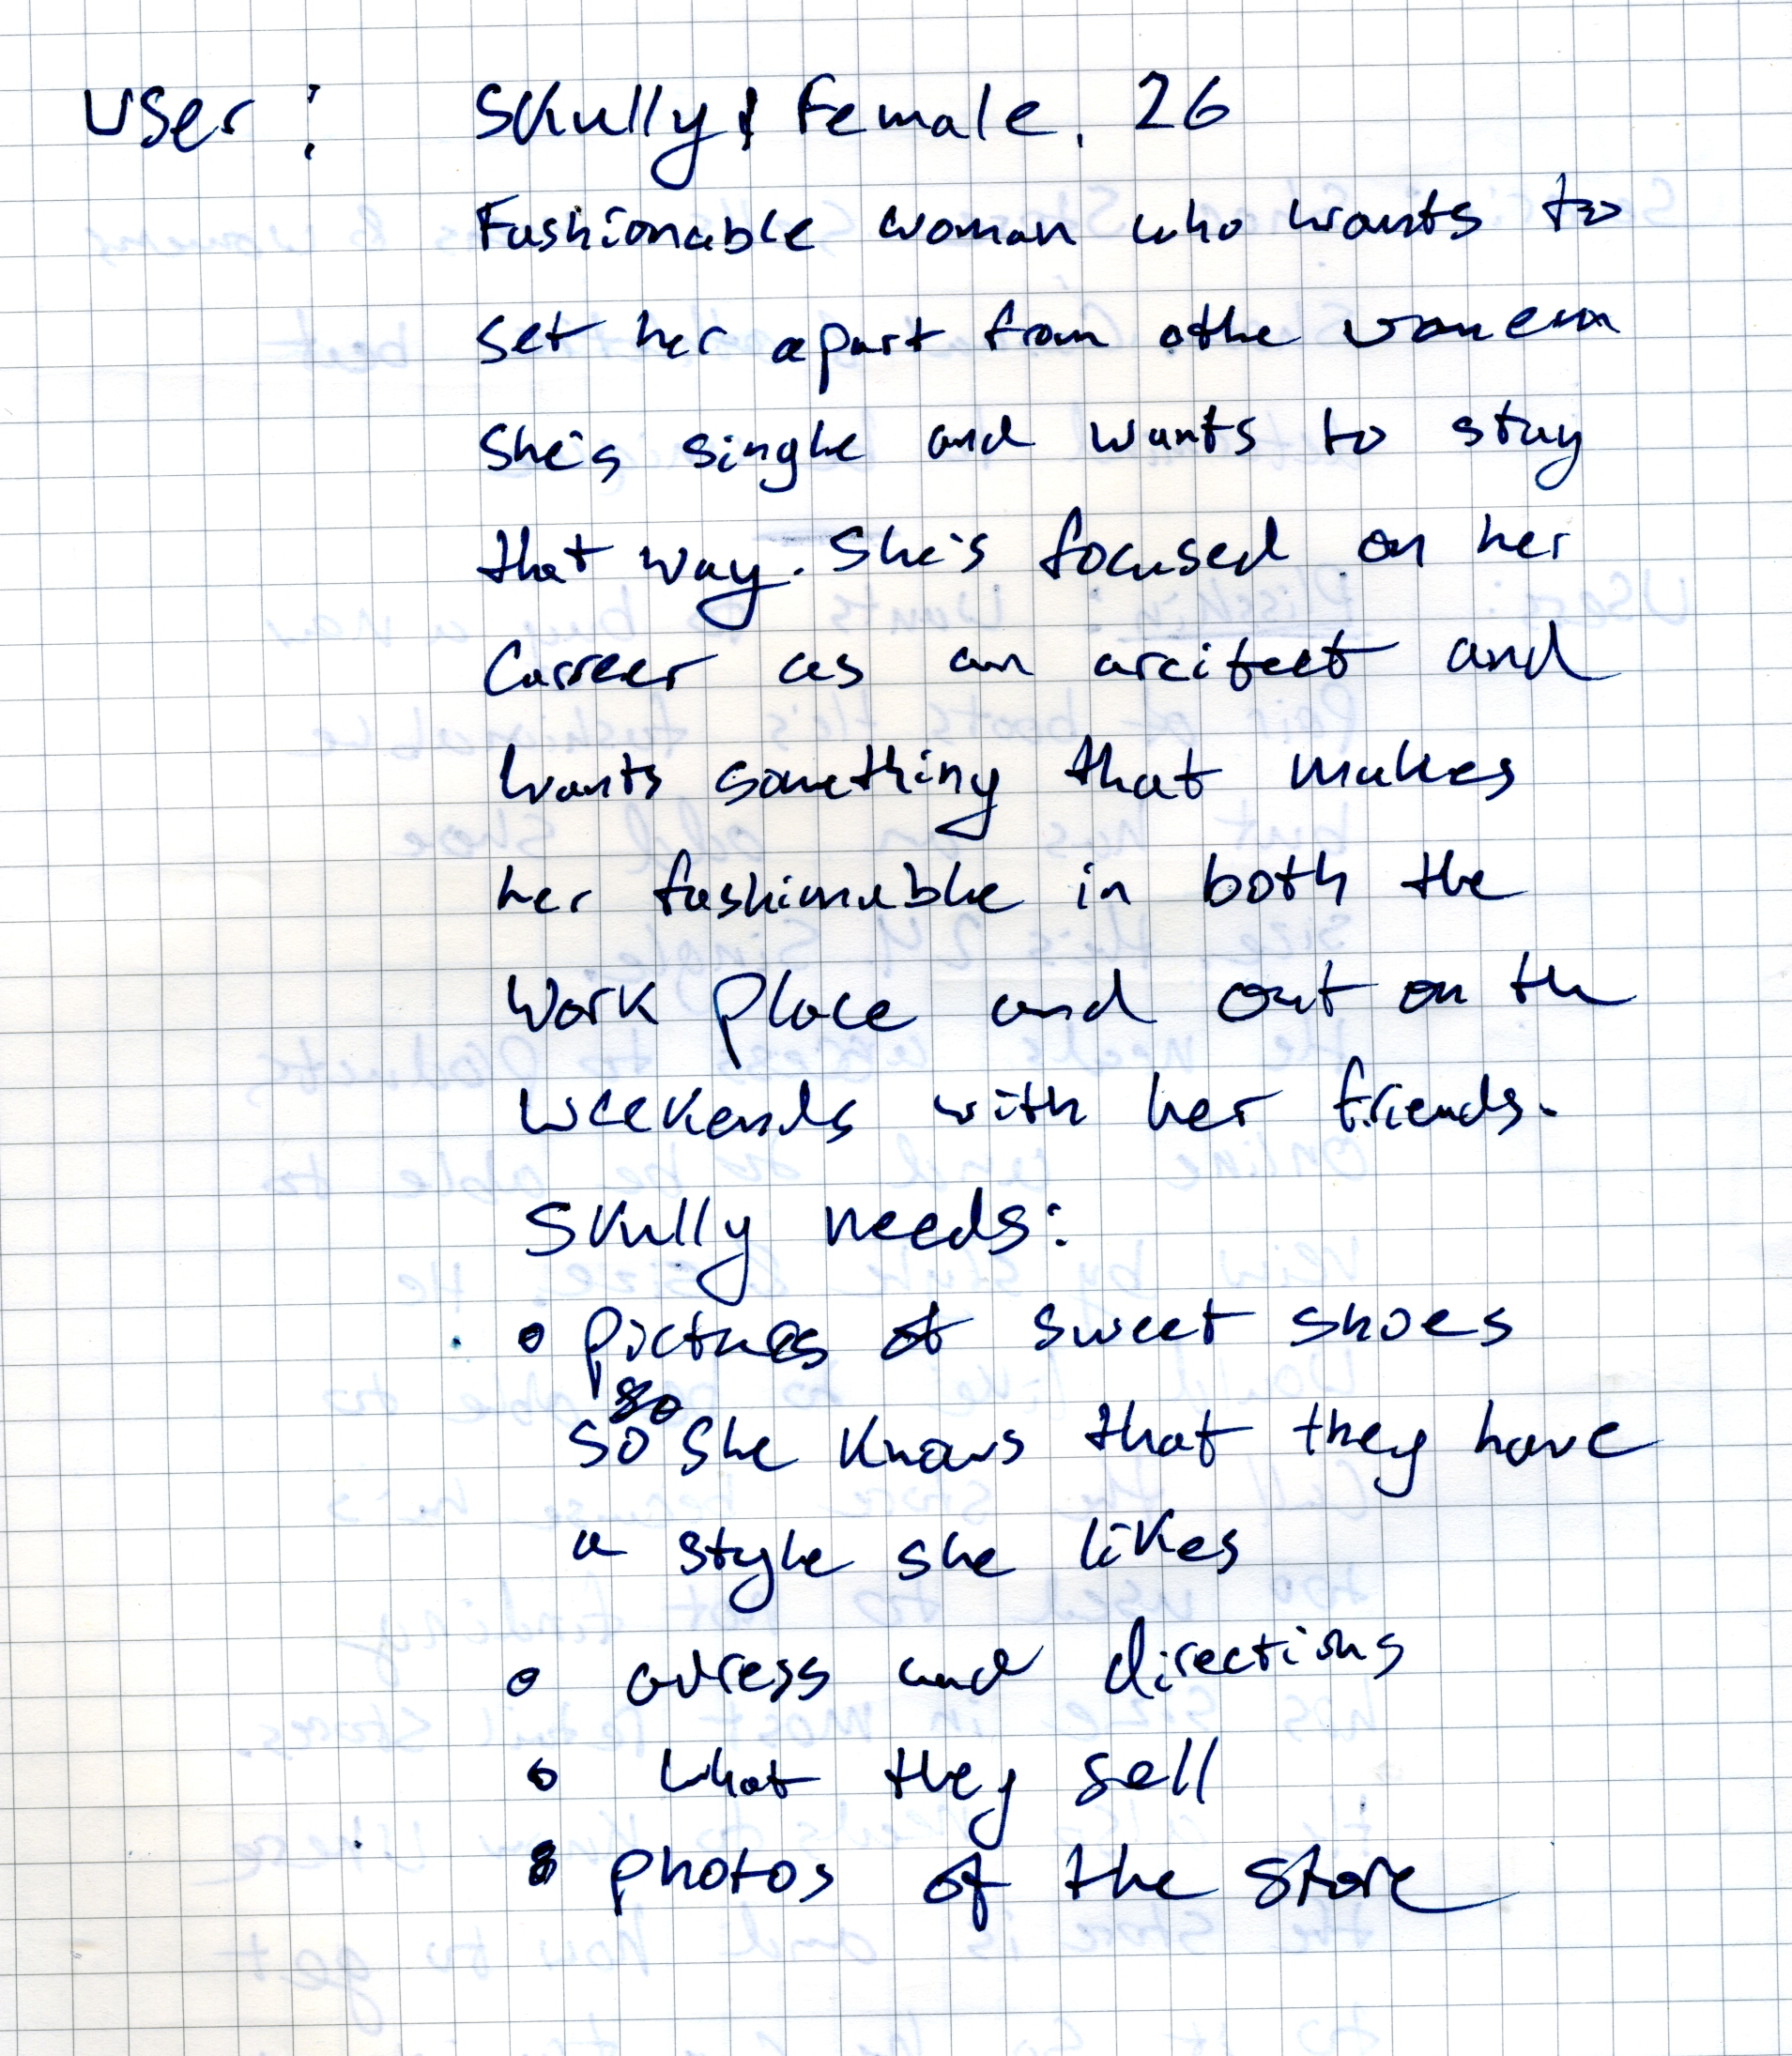 User: Skully, Female, 26
Fashionable woman who wants to
set her apart from othe women
She's single and wants to stay
that way. She's focused on her
Carreer as an arcitect and
wants something that makes
her fashionable in both the
work place and out on the
weekends with her friends.
Skully needs:
• pictures of sweet shoes
so she knows that they have
a style she likes
• adress and directions
• what they sell
• photos of the store